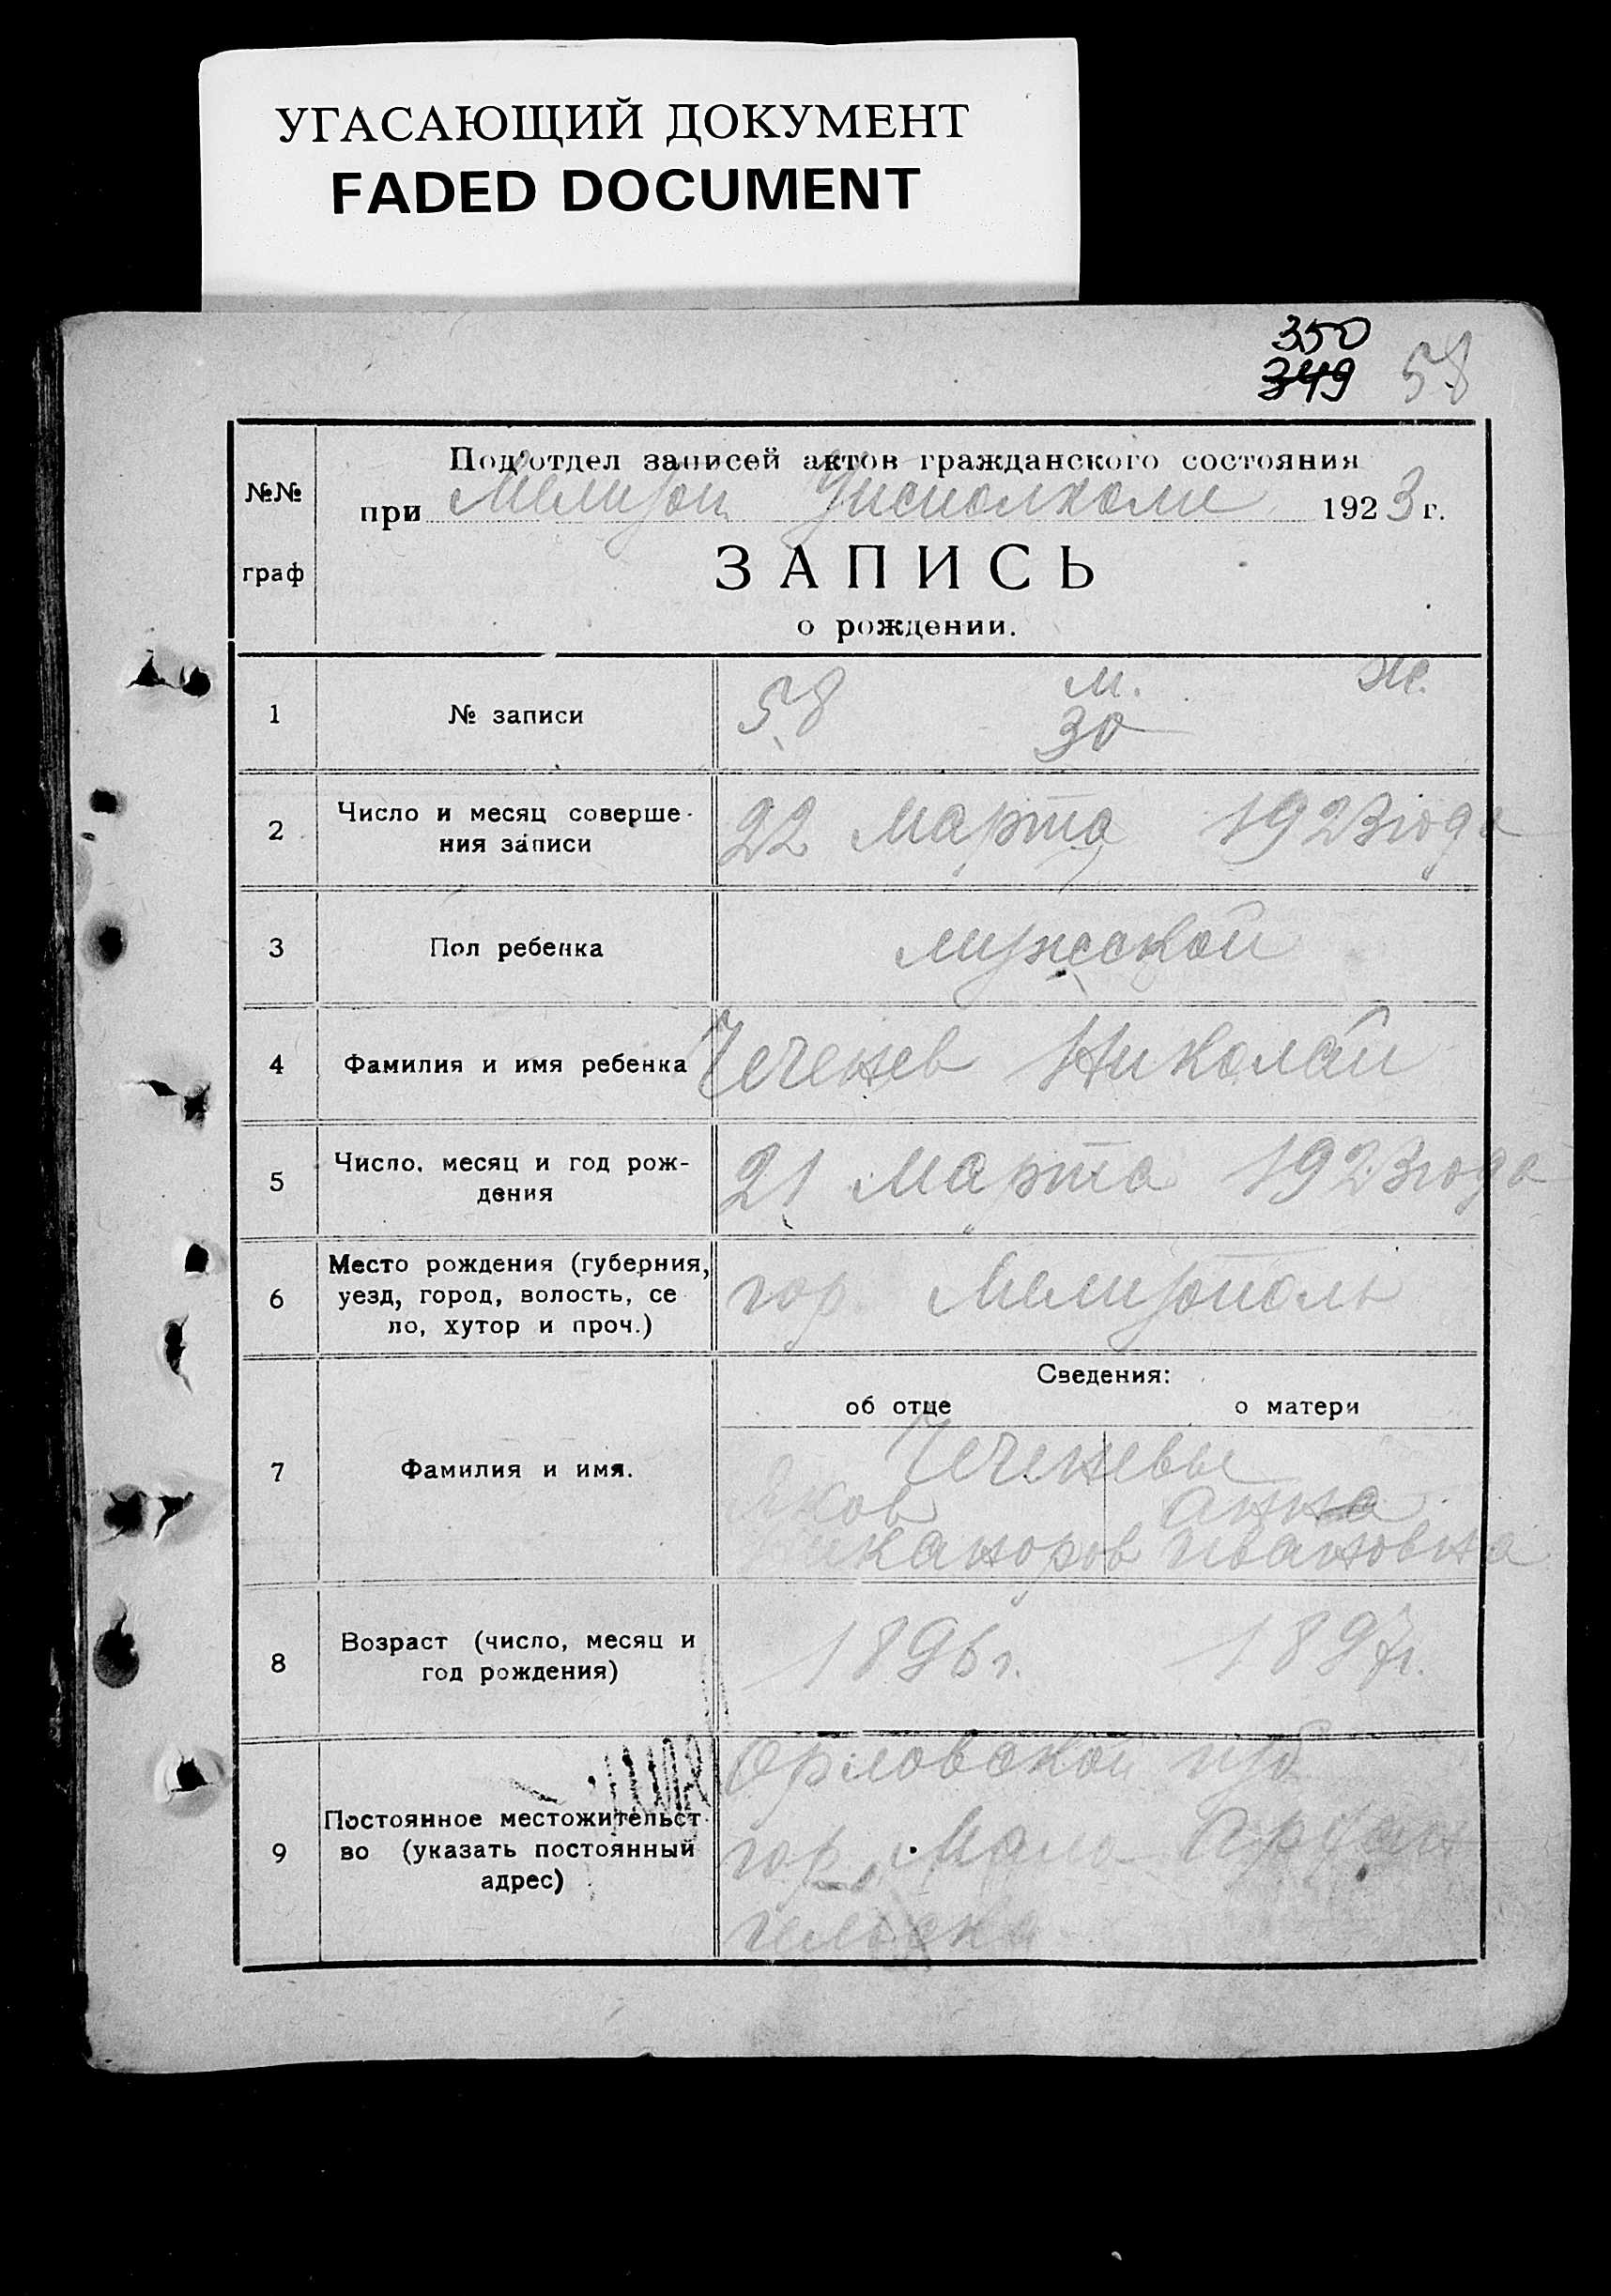 УГАСАЮЩИЙ ДОКУМЕНТ
FADED DOCUMENT
350
349 58
№№
граф
Под'отдел записей актов гражданского состояния
при Мелитоп. Уисполкоме 1923 г.
ЗАПИСЬ
о рождении.
м. ж.
1 № записи 58 30
2 Число и месяц соверше-
ния записи 22 Марта 1923 года
3 Пол ребенка мужской
4 Фамилия и имя ребенка Чеченев Николай
5 Число, месяц и год рож-
дения 21 Марта 1923 года
6 Место рождения (губерния,
уезд, город, волость, се
ло, хутор и проч.) гор. Мелитополь
Сведения:
об отце о матери
7 Фамилия и имя. Чеченевы
Яков Анна
Никаноров Ивановна
8 Возраст (число, месяц и
год рождения) 1896 г. 1897 г.
9 Постоянное местожительст
во (указать постоянный
адрес)
Орловской губ
гор. Мало Архан
гельска